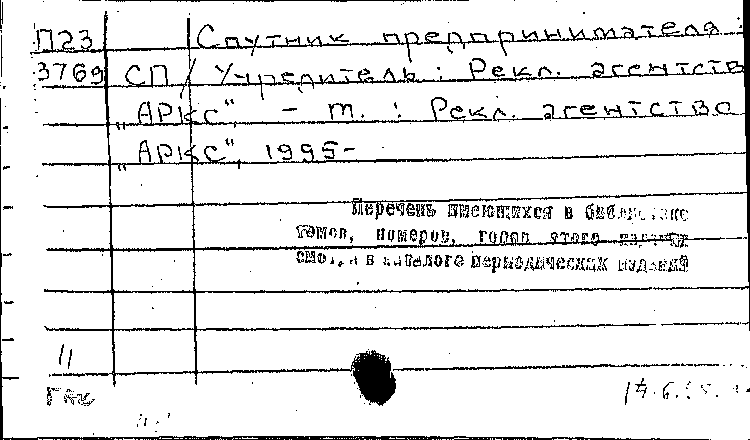 П23 Спутник предпринимателя :
3769 СП / Учредитель : Рекл. агентств
„АРКС“, – М. : Рекл. агентство
„АРКС“, 1995-
Перечень имеющихся в библиотеке
томов, номеров, годов этого издания
смотри в каталоге периодических изданий
11
ГАК